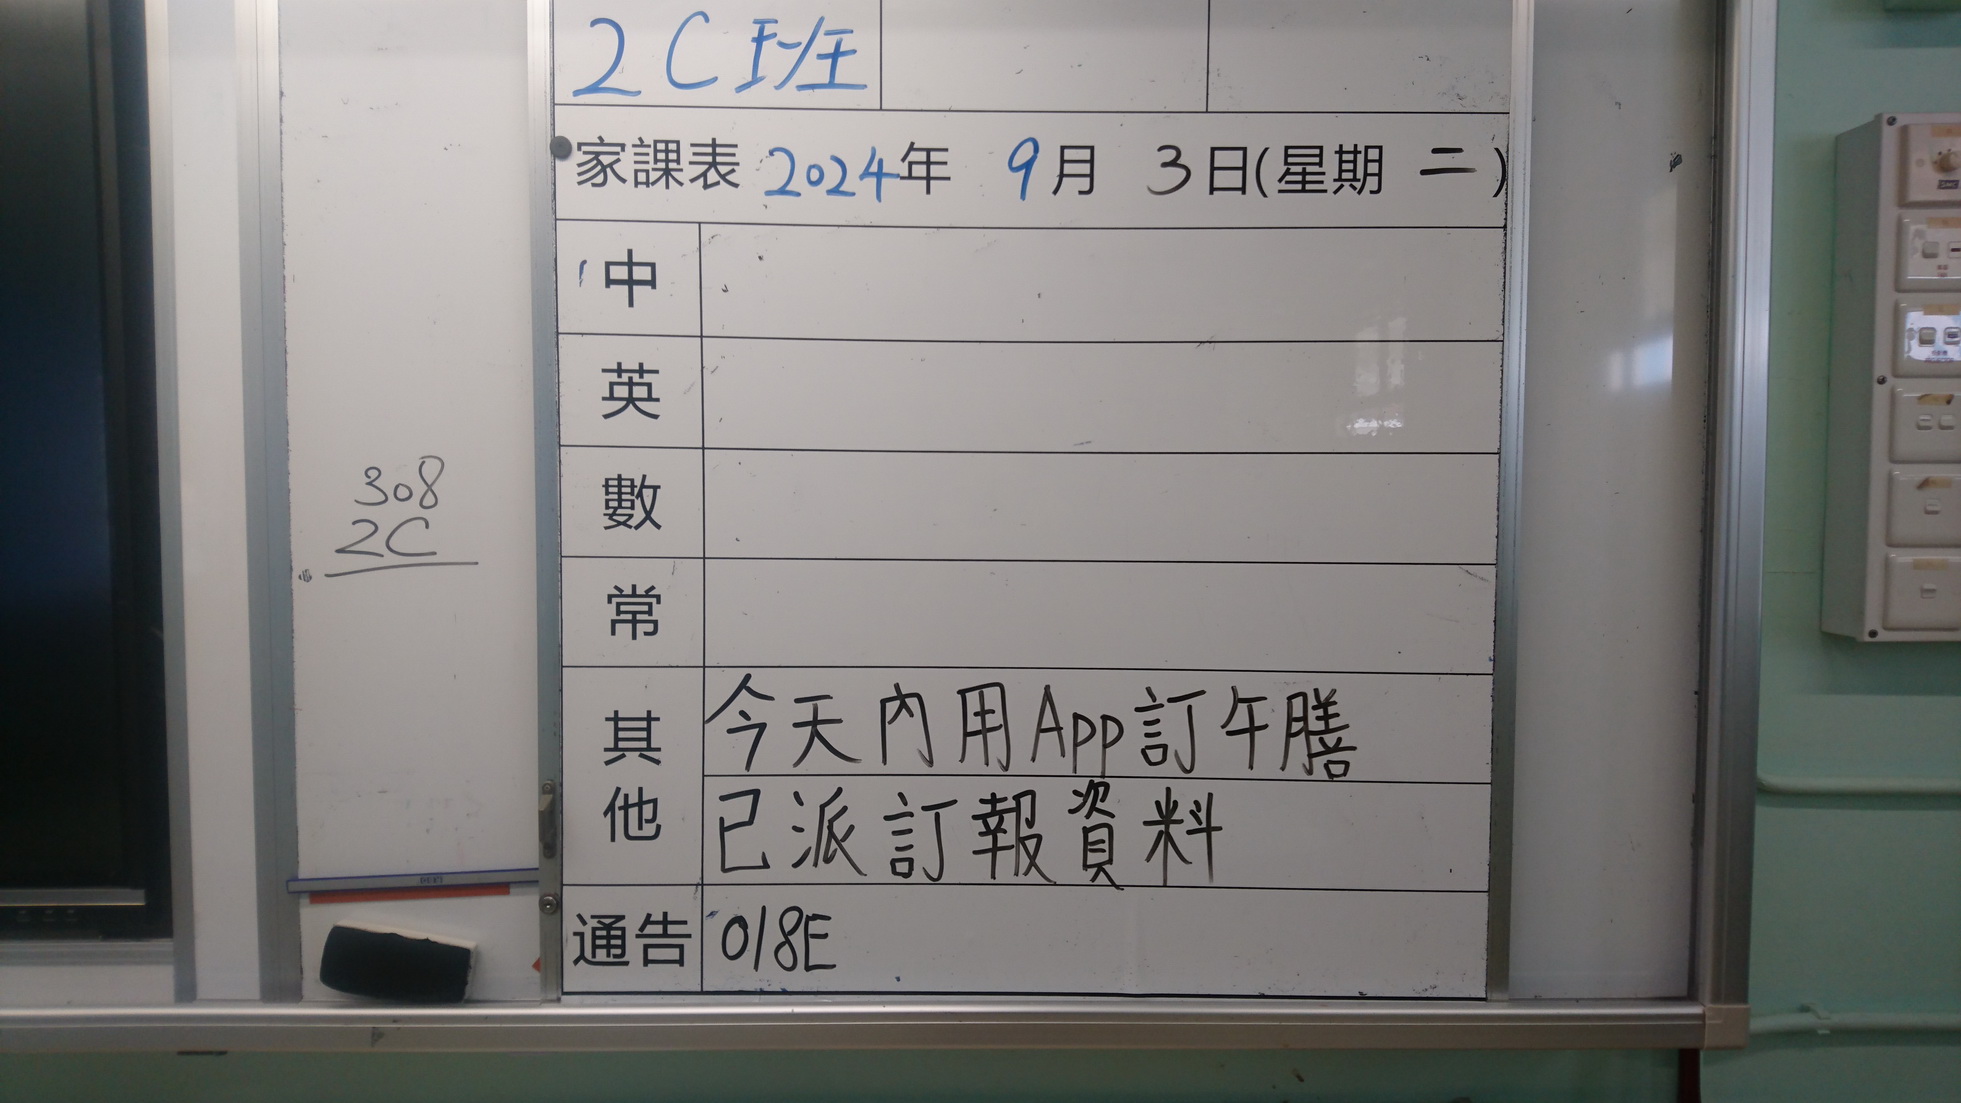 2C班
家課表 2024年 9月 3日(星期 二)
中
英
數
常
其他
今天內用App訂午膳
已派訂報資料
通告 018E
308
2C